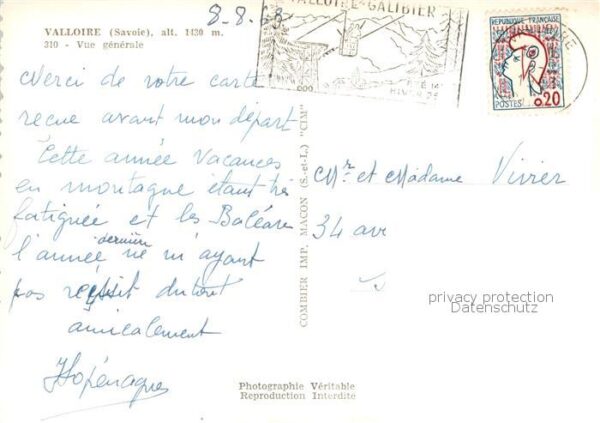 VALLOIRE (Savoie), alt. 1430 m.
310 - Vue générale
8-8.63
VALLOIRE-GALIBIER
HIVER
RÉPUBLIQUE FRANÇAISE
POSTES 0,20
Merci de votre carte
recue avant mon départ
Cette année vacances
en montagne étant très
fatiguée et les Baléares
l'année dernière ne m'ayant
pas réussit du tout
amicalement
COMBIER IMP. MACON (S.-et-L.) "CIM"
Mr et Madame Vivier
34 ave
privacy protection
Datenschutz
Photographie Véritable
Reproduction Interdite